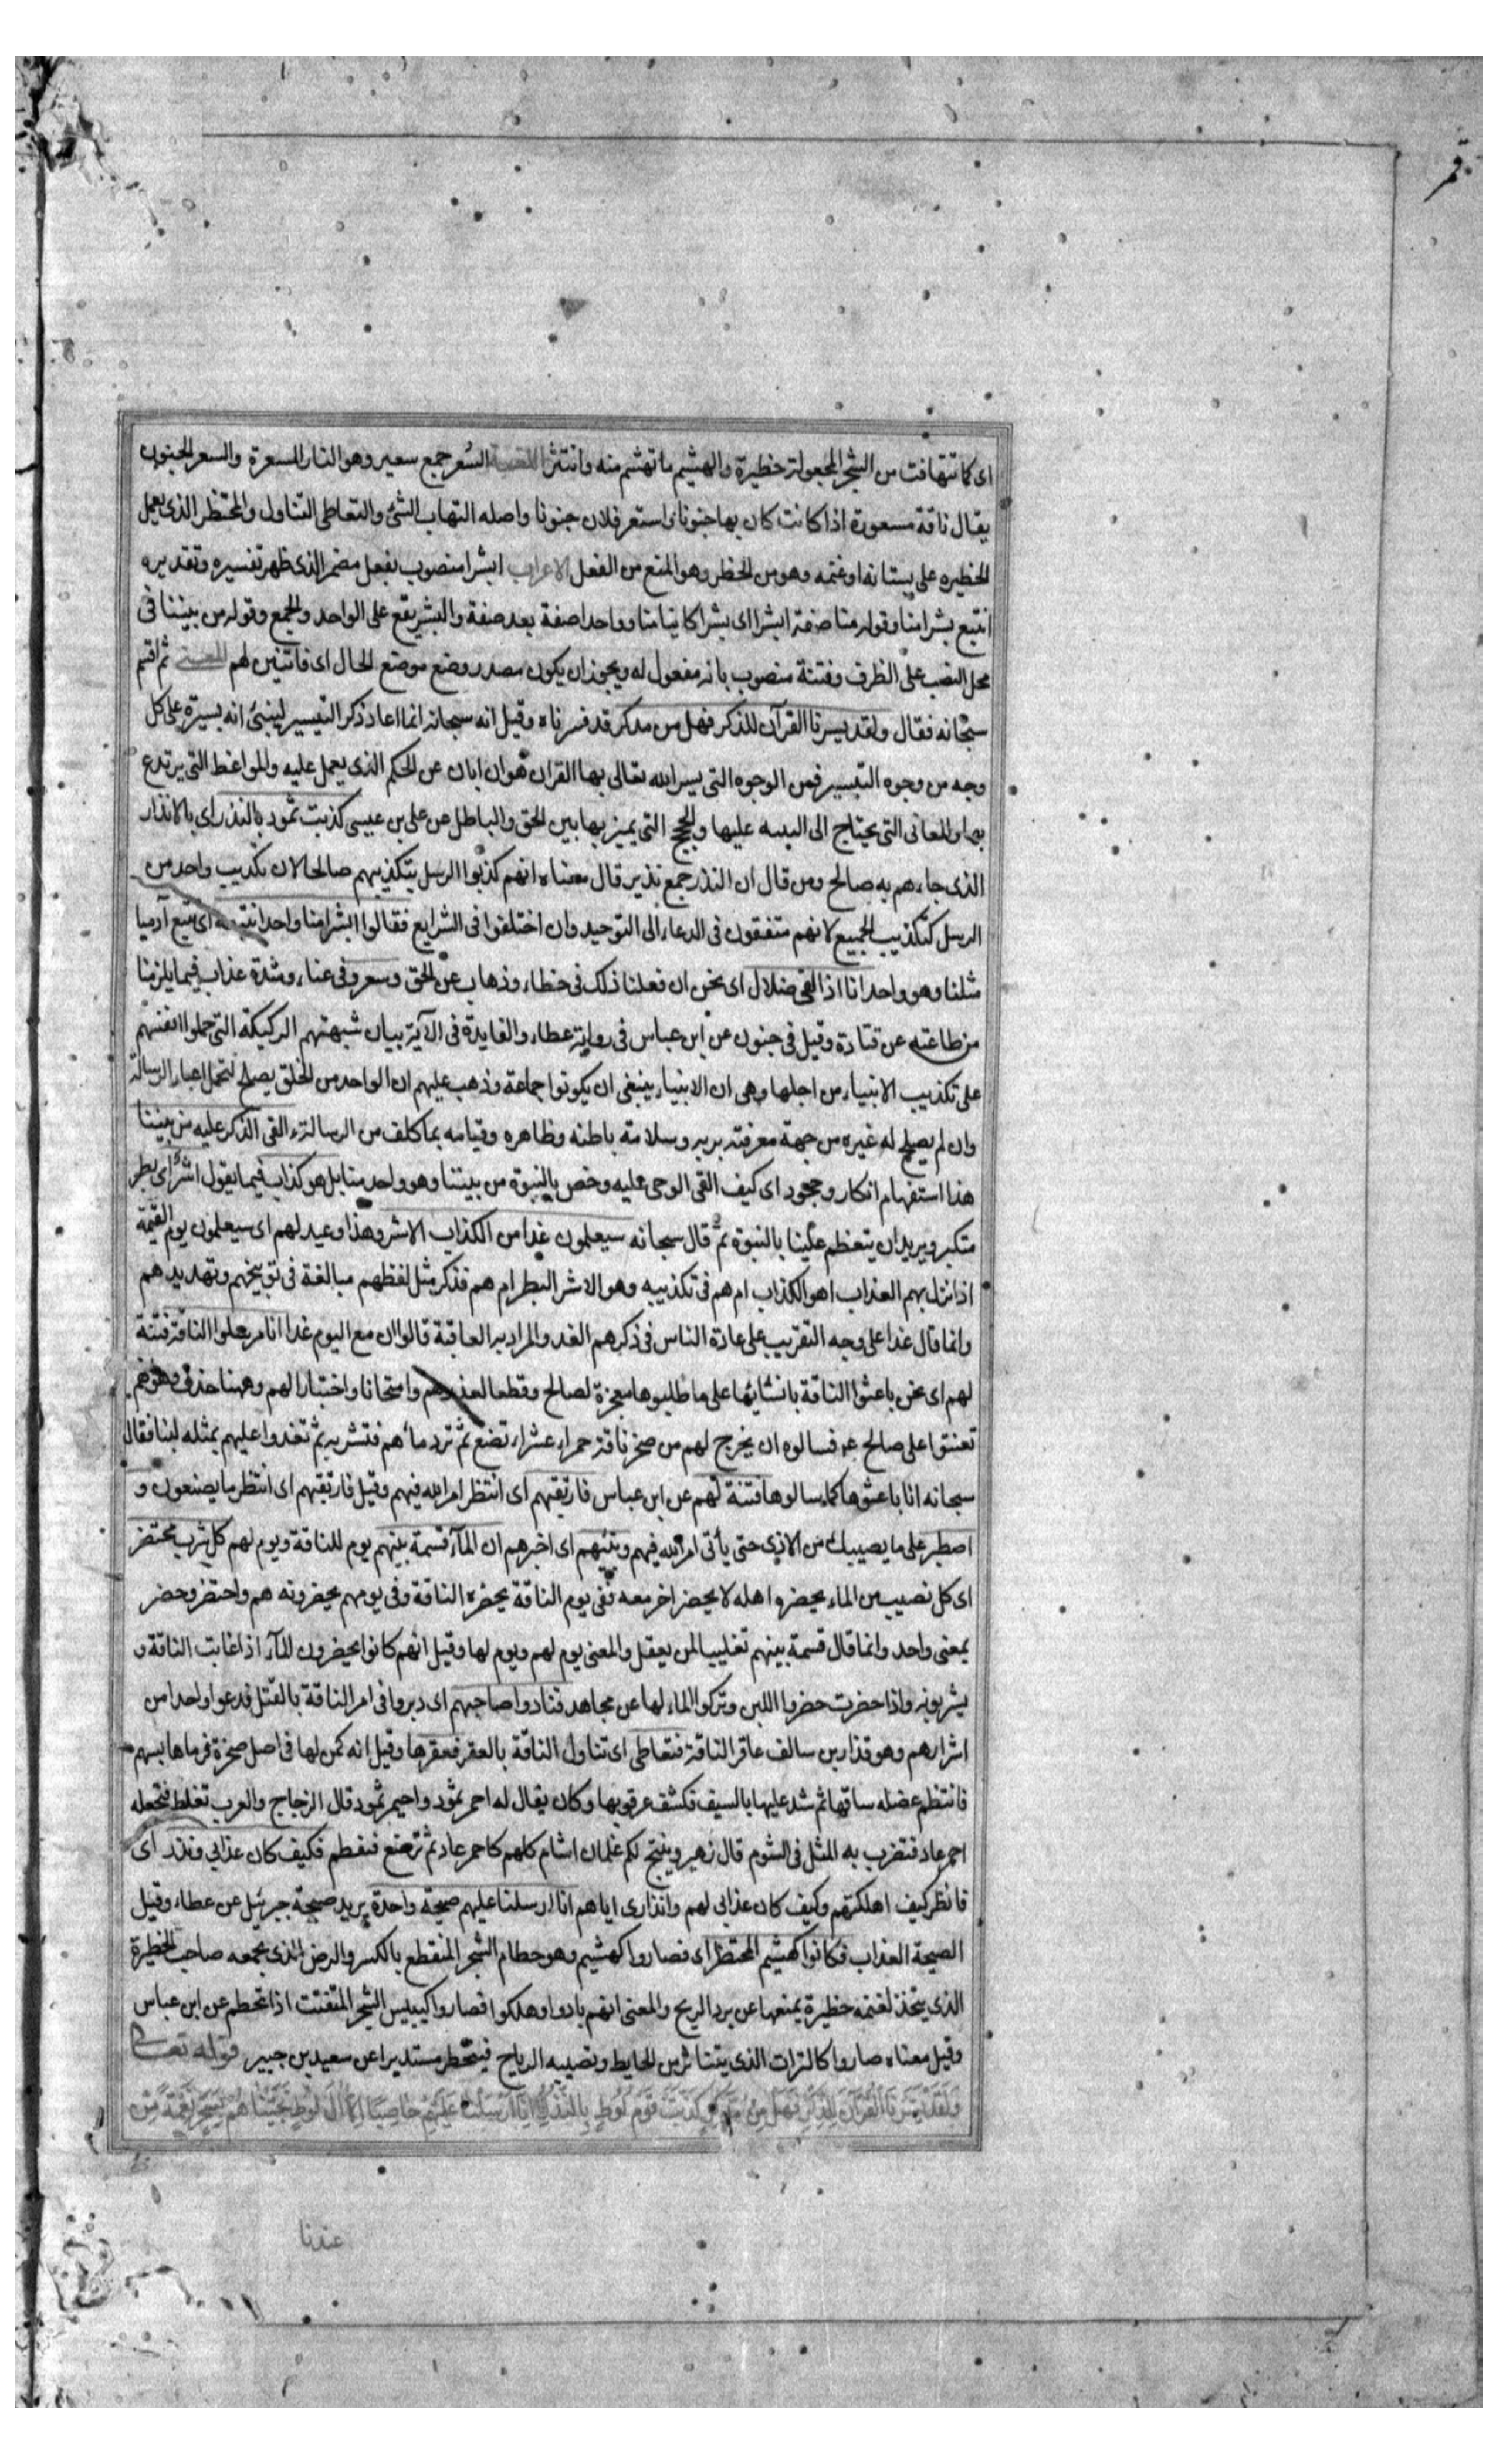 قمر
اى كما تتهافت من الشجر المجعولة حظيرة والهشيم ما تهشم منه وانتثر اللغة السعر جمع سعير وهو النار المسعرة والسعر الجنون
يقال ناقة مسعورة اذا كانت كان بها جنونا واستعر فلان جنونا واصله التهاب الشئ والتعاطى التناول والمحتظر الذى يعمل
الحظيره على بستانه او غنمه وهو من الحظر وهو المنع من الفعل الاعراب ابشرا منصوب بفعل مضمر الذى ظهر تفسيره وتقديره
انتبع بشرا منا وقوله منا صفة ابشرا اى بشرا كاينا منا وواحدا صفة بعد صفة والبشر يقع على الواحد والجمع وقوله من بيننا فى
محل النصب على الظرف وفتنة منصوب بانه مفعول له ويجوز ان يكون مصدر وضع موضع الحال اى فاتنين لهم المعنى ثم اقسم
سبحانه فقال ولقد يسرنا القرآن للذكر فهل من مدكر قد فسرناه وقيل انه سبحانه انما اعاد ذكر التيسير لينبئ انه يسيرة على كل
وجه من وجوه التيسير فمن الوجوه التى يسر الله تعالى بها القران هو ان ابان عن الحكم الذى يعمل عليه والمواعظ التى يرتدع
بها والمعانى التى يحتاج الى عليها والحجج التى يميز بها بين الحق والباطل عن على بن عيسى كذبت ثمود بالنذر اى بالانذار
الذى جاءهم به صالح ومن قال ان النذر جمع نذير قال معناه انهم كذبوا الرسل بتكذيبهم صالحا لان تكذيب واحد من
الرسل كتكذيب الجميع لانهم متفقون فى الدعاء الى التوحيد وان اختلفوا فى الشرايع فقالوا ابشرا منا واحدا نتبعه اى نتبع آدميا
مثلنا وهو واحد انا اذا لفى ضلال اى نحن ان فعلنا ذلك فى خطاء وذهاب عن الحق وسعر وفى عناء وشدة عذاب فيما يلزمنا
من طاعته عن قتادة وقيل فى جنون عن ابن عباس فى رواية عطاء والفايدة فى الآية بيان شبهتهم الركيكة التى حملوا انفسهم
على تكذيب الانبياء من اجلها وهى ان الانبياء ينبغى ان يكونوا جماعة وذهب عليهم ان الواحد من الخلق يصلح لتحمل اعباء الرسالة
وان لم يصلح له غيره من جهة معرفته بربه وسلامة باطنه وظاهره وقيامه بما كلف من الرسالة ءالقى الذكر عليه من بيننا
هذا استفهام انكار وجحود اى كيف القى الوحى عليه وخص بالنبوة من بيننا وهو واحد منا بل هو كذاب فيما يقول اشر اى بطر
متكبر ويريد ان يتعظم علينا بالنبوة ثم قال سبحانه سيعلمون غدا من الكذاب الاشر وهذا وعيد لهم اى سيعلمون يوم القيمة
اذا نزل بهم العذاب اهو الكذاب ام هم فى تكذيبه وهو الاشر البطر ام هم فذكر مثل لفظهم مبالغة فى توبيخهم وتهديدهم
وانما قال غدا على وجه التقريب على عادة الناس فى ذكرهم الغد والمراد به العاقبة قالوا ان مع اليوم غدا انا مرسلوا الناقة فتنة
لهم اى نحن باعثوا الناقة بانشائها على ما طلبوها معجزة لصالح وقطعا لعذرهم وامتحانا واختبارا لهم وههنا حذف وهو انهم
تعنتوا على صالح ع فسالوه ان يخرج لهم من صخر ناقة حمراء عشراء تضع ثم ترد ماءهم فتشربه ثم تغدوا عليهم بمثله لبنا فقال
سبحانه انا باعثوها كما سالوها فتنة لهم عن ابن عباس فارتقبهم اى انتظر امر الله فيهم وقيل فارتقبهم اى انتظر ما يصنعون و
اصطبر على ما يصيبك من الاذى حتى يأتى امر الله فيهم ونبئهم اى اخبرهم ان المآء قسمة بينهم يوم للناقة ويوم لهم كل شرب محتضر
اى كل نصيب من الماء يحضروا هله لا يحضر اخر معه ففى يوم الناقة يحضره الناقة وفى يومهم يحضرونه هم واحتضر وحضر
بمعنى واحد وانما قال قسمة بينهم تغليبا لمن يعقل والمعنى يوم لهم ويوم لها وقيل انهم كانوا يحضرون المآء اذا غابت الناقة و
يشربونه واذا حضرت حضروا اللبن وتركوا الماء لها عن مجاهد فنادوا صاحبهم اى دبروا فى امر الناقة بالقتل فدعوا واحدا من
اشرارهم وهو قذار بن سالف عاقر الناقة فتعاطى اى تناول الناقة بالعقر فعقرها وقيل انه كمن لها فى اصل صخرة فرماها بسهم
فانتظم عضله ساقها ثم شد عليها بالسيف فكشف عرقوبها وكان يقال له احمر ثمود واحيمر ثمود قال الزجاج والعرب تغلط فتجعله
احمر عاد فتضرب به المثل فى الشوم قال زهير وينتج لكم غلمان اشام كلهم كاحمر عاد ثم ترضع فتفطم فكيف كان عذابى ونذر اى
فانظر كيف اهلكتهم وكيف كان عذابى لهم وانذارى اياهم انا ارسلنا عليهم صيحة واحدة يريد صيحة جبرئيل عن عطاء وقيل
الصيحة العذاب فكانوا كهشيم المحتظر اى فصاروا كهشيم وهو حطام الشجر المنقطع بالكسر والرض الذى يجمعه صاحب الحظيرة
الذى يتخذ لغنمه حظيرة يمنعها عن برد الريح والمعنى انهم بادوا وهلكوا فصاروا كيبيس الشجر المتفتت اذا تحطم عن ابن عباس
وقيل معناه صاروا كالتراب الذى يتناثر من الحايط وتصيبه الرياح فيتحظر مستديرا عن سعيد بن جبير قوله تعالى
وَلَقَدْ يَسَّرْنَا الْقُرْآنَ لِلذِّكْرِ فَهَلْ مِنْ مُدَّكِرٍ كَذَّبَتْ قَوْمُ لُوطٍ بِالنُّذُرِ اِنَّا اَرْسَلْنَا عَلَيْهِمْ حَاصِبًا اِلَّا آلَ لُوطٍ نَجَّيْنَاهُمْ بِسَحَرٍ نِعْمَةً مِنْ
عندنا